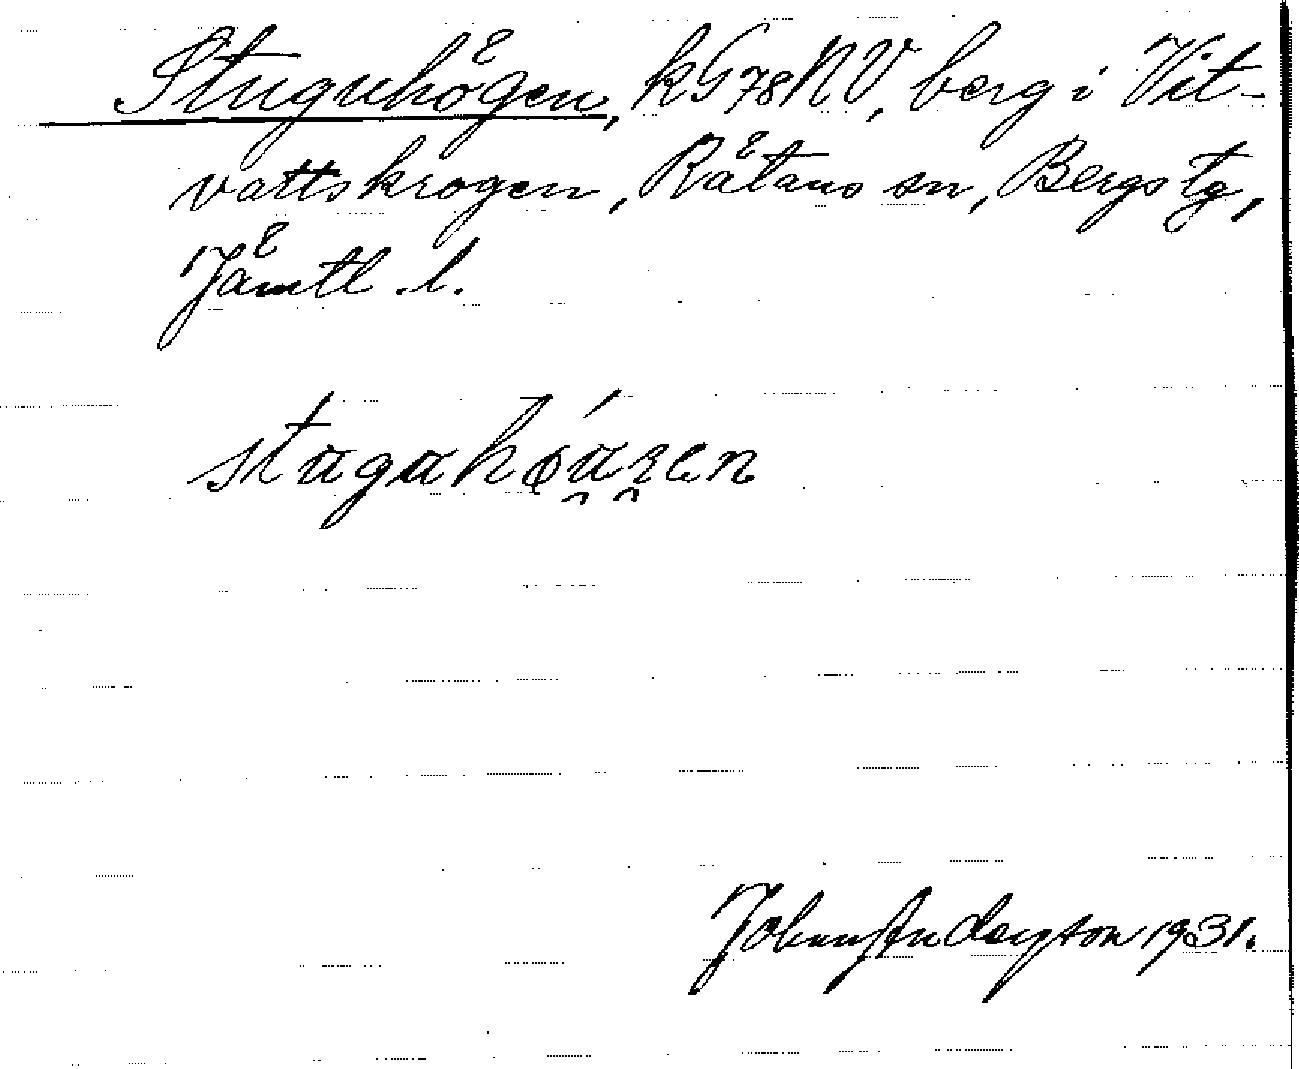 Stuguhögen, kG78NV, berg i Vit-
vattskrogen, Råtans sn, Bergs tg,
Jämtl. l.
Johan Anderson 1931.